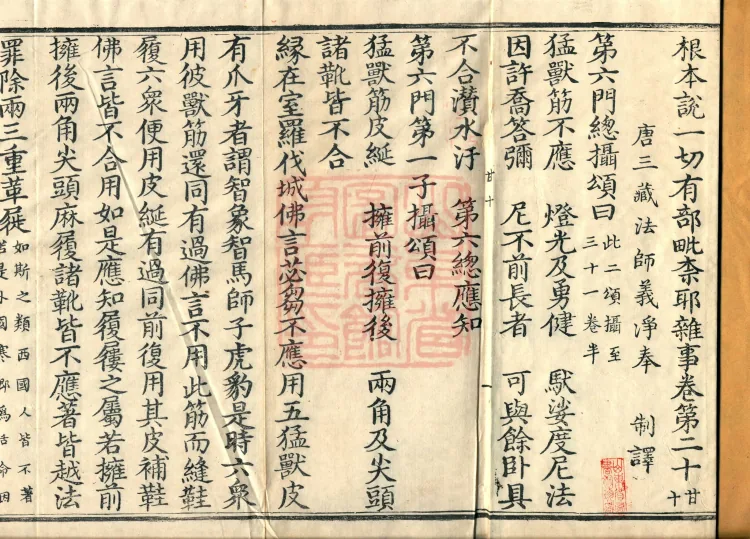 根本說一切有部毗柰耶雜事卷第二十 甘十
唐三藏法師義淨奉 制譯
第六門總攝頌曰 此二頌攝至三十一卷半
猛獸筋不應 燈光及勇健 馱娑度尼法
因許喬答彌 尼不前長者 可與餘卧具
不合濽水汙 第六總應知
甘十 一
第六門第一子攝頌曰
猛獸筋皮綖 擁前復擁後 兩角及尖頭
諸靴皆不合
緣在室羅伐城佛言苾芻不應用五猛獸皮
有爪牙者謂智象智馬師子虎豹是時六衆
用彼獸筋還同有過佛言不用此筋而縫鞋
履六衆便用皮綖有過同前復用其皮補鞋
佛言皆不合用如是應知履屨之屬若擁前
擁後兩角尖頭麻履諸靴皆不應著皆越法
罪除兩三重革屣 如斯之類西國人皆不著若是外國寒鄉爲活命因